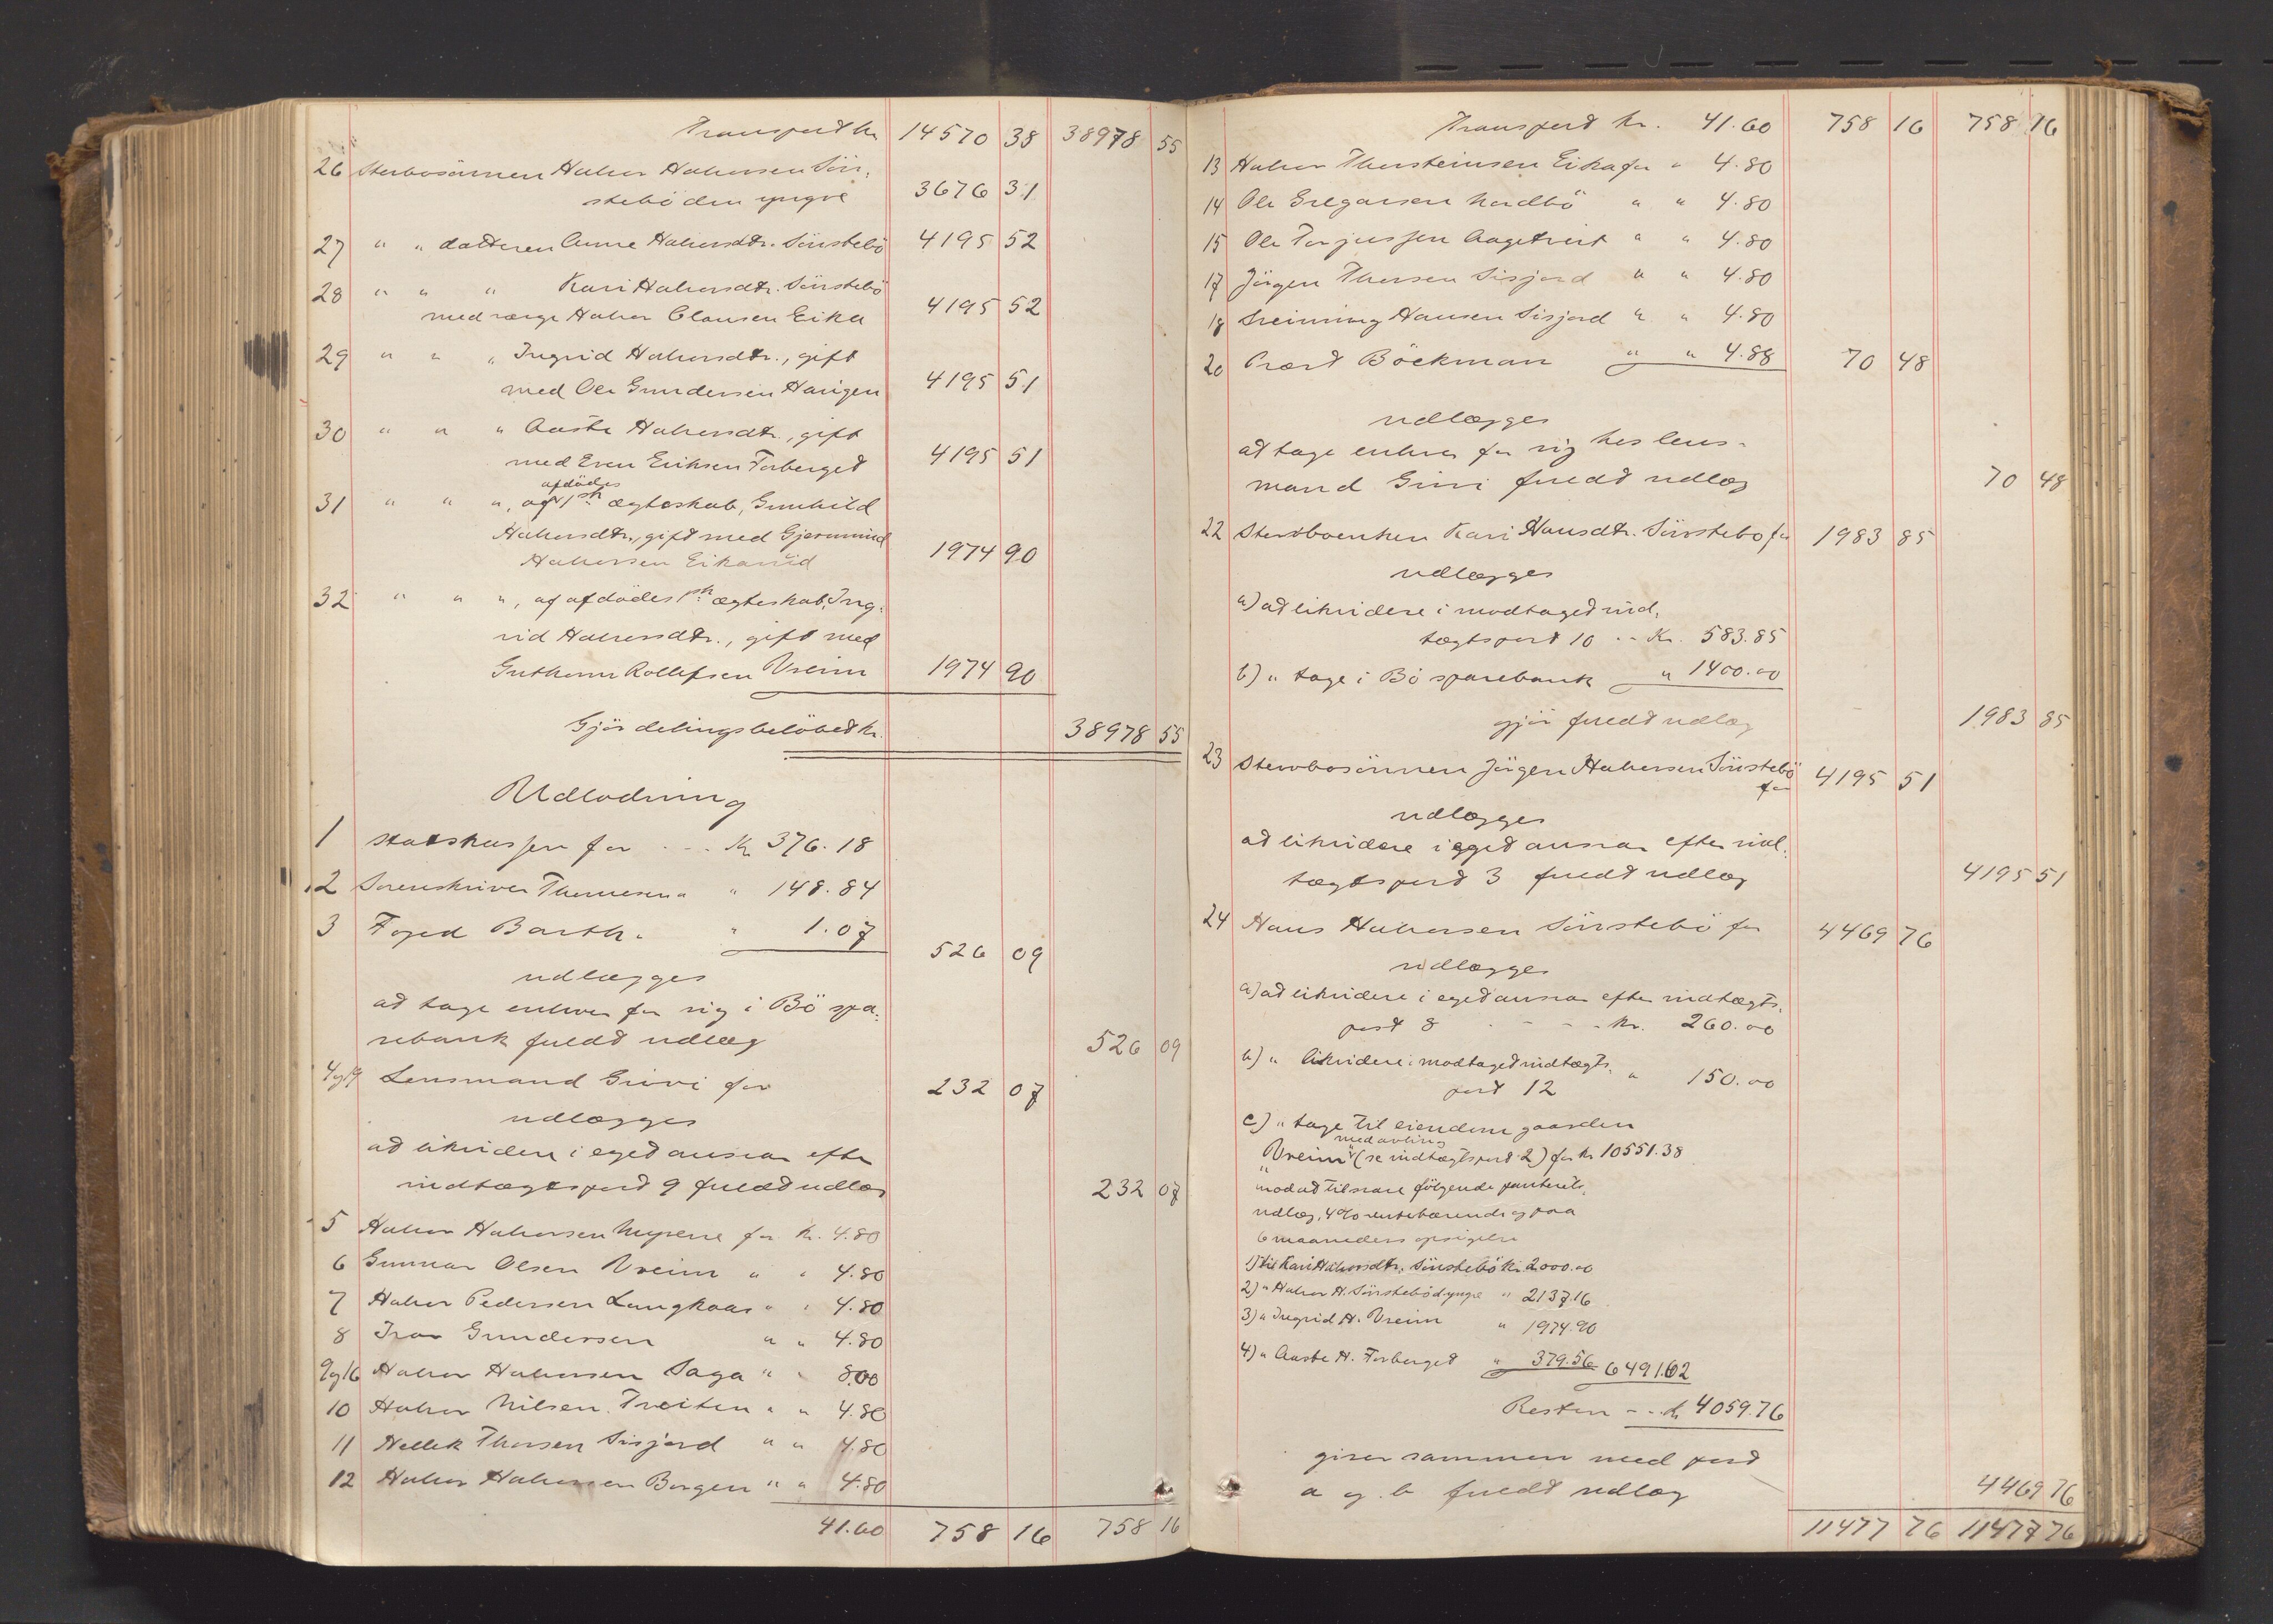 Transport kr 14570 38 38978 55
26 Sterbosönnen Halvor Halvorsen Sön-
stebö den yngre 3676 31
27 " " datteren Anne Halvorsdtr. Sönstebö 4195 52
28 " " " Kari Halvorsdtr. Sönstebö
med verge Halvor Clausen Eika 4195 52
29 " " " Ingrid Halvorsdtr., gift
med Ole Gundersen Haugen 4195 51
30 " " " Aaste Halvorsdtr., gift
med Even Eriksen Forberged 4195 51
31 " " ", af afdödes 1ste ægteskab, Gunhild
Halvorsdtr., gift med Gjermund
Halvorsen Eikarud 1974 90
32 " " ", af afdödes 1ste ægteskab, Ing-
rid Halvorsdtr., gift med
Guthorm Rollefsen Vreim 1974 90
Gjör delingsbelöbet kr. 38978 55
Udlodning
1 Statskassen for - - - Kr 376.18
2 Sorenskriver Thomesen " " 148.84
3 Foged Barth " " 1.07 526 09
udlægges
at tage enhver for sig i Bö spa-
rebank fuldt udlæg 526 09
4 og 19 Lensmand Grivi for 232 07
udlægges
at likvidere i eget ansvar efter
indtægtspost 9 fuldt udlæg 232 07
5 Halvor Halvorsen Nuperre for kr. 4.80
6 Gunnar Olsen Vreim " " 4.80
7 Halvor Pedersen Langkaas " " 4.80
8 Ivar Gundersen " " 4.80
9 og 16 Halvor Halvorsen Saga " " 8.00
10 Halvor Nilsen Treiten " " 4.80
11 Hellek Thorsen Sisjord " " 4.80
12 Halvor Halvorsen Borgen " " 4.80
41.60 758 16 758 16
Transport kr. 41.60 758 16 758 16
13 Halvor Thorsteinsen Eika for " 4.80
14 Ole Gregarsen Nordbö " " 4.80
15 Ole Torjussen Aagetveit " " 4.80
17 Jörgen Thorsen Sisjord " " 4.80
18 Sveinung Hansen Sisjord " " 4.80
20 Præst Böckman " " 4.88 70 48
udlægges
at tage enhver for sig hos lens-
mand Grivi fuldt udlæg 70 48
22 Sterboenken Kari Hansdtr. Sönstebö for 1983 85
udlægges
a) at likvidere i modtaget ind-
tægtspost 10 - - Kr. 583.85
b) " tage i Bö sparebank " 1400.00
gjör fuldt udlæg 1983 85
23 Sterbosönnen Jörgen Halvorsen Sönstebö
for 4195 51
udlægges
at likvidere i eget ansvar efter ind-
tægtspost 3 fuldt udlæg 4195 51
24 Hans Halvorsen Sönstebö for 4469 76
udlægges
a) at likvidere i eget ansvar efter indtægts-
post 8 - - - - kr. 260.00
b) " likvidere i modtaget indtægts-
post 12 " 150.00
c) " tage til eiendom gaarden
med avling
"Vreim" (se indtægtspost 2) for kr 10551.38
mod at tilsvare fölgende panterets-
udlæg, 4% rentebærende og paa
6 maaneders opsigelse
1) til Kari Halvorsdtr. Sönstebö kr. 2000.00
2) " Halvor H. Sönstebö d. yngre " 2137.16
3) " Ingrid H. Vreim " 1974.90
4) " Aaste H. Forberged " 379.56 6491.62
Resten - - kr 4059.76
giver sammen med post
a og b fuldt udlæg 4469 76
11477 76 11477 76